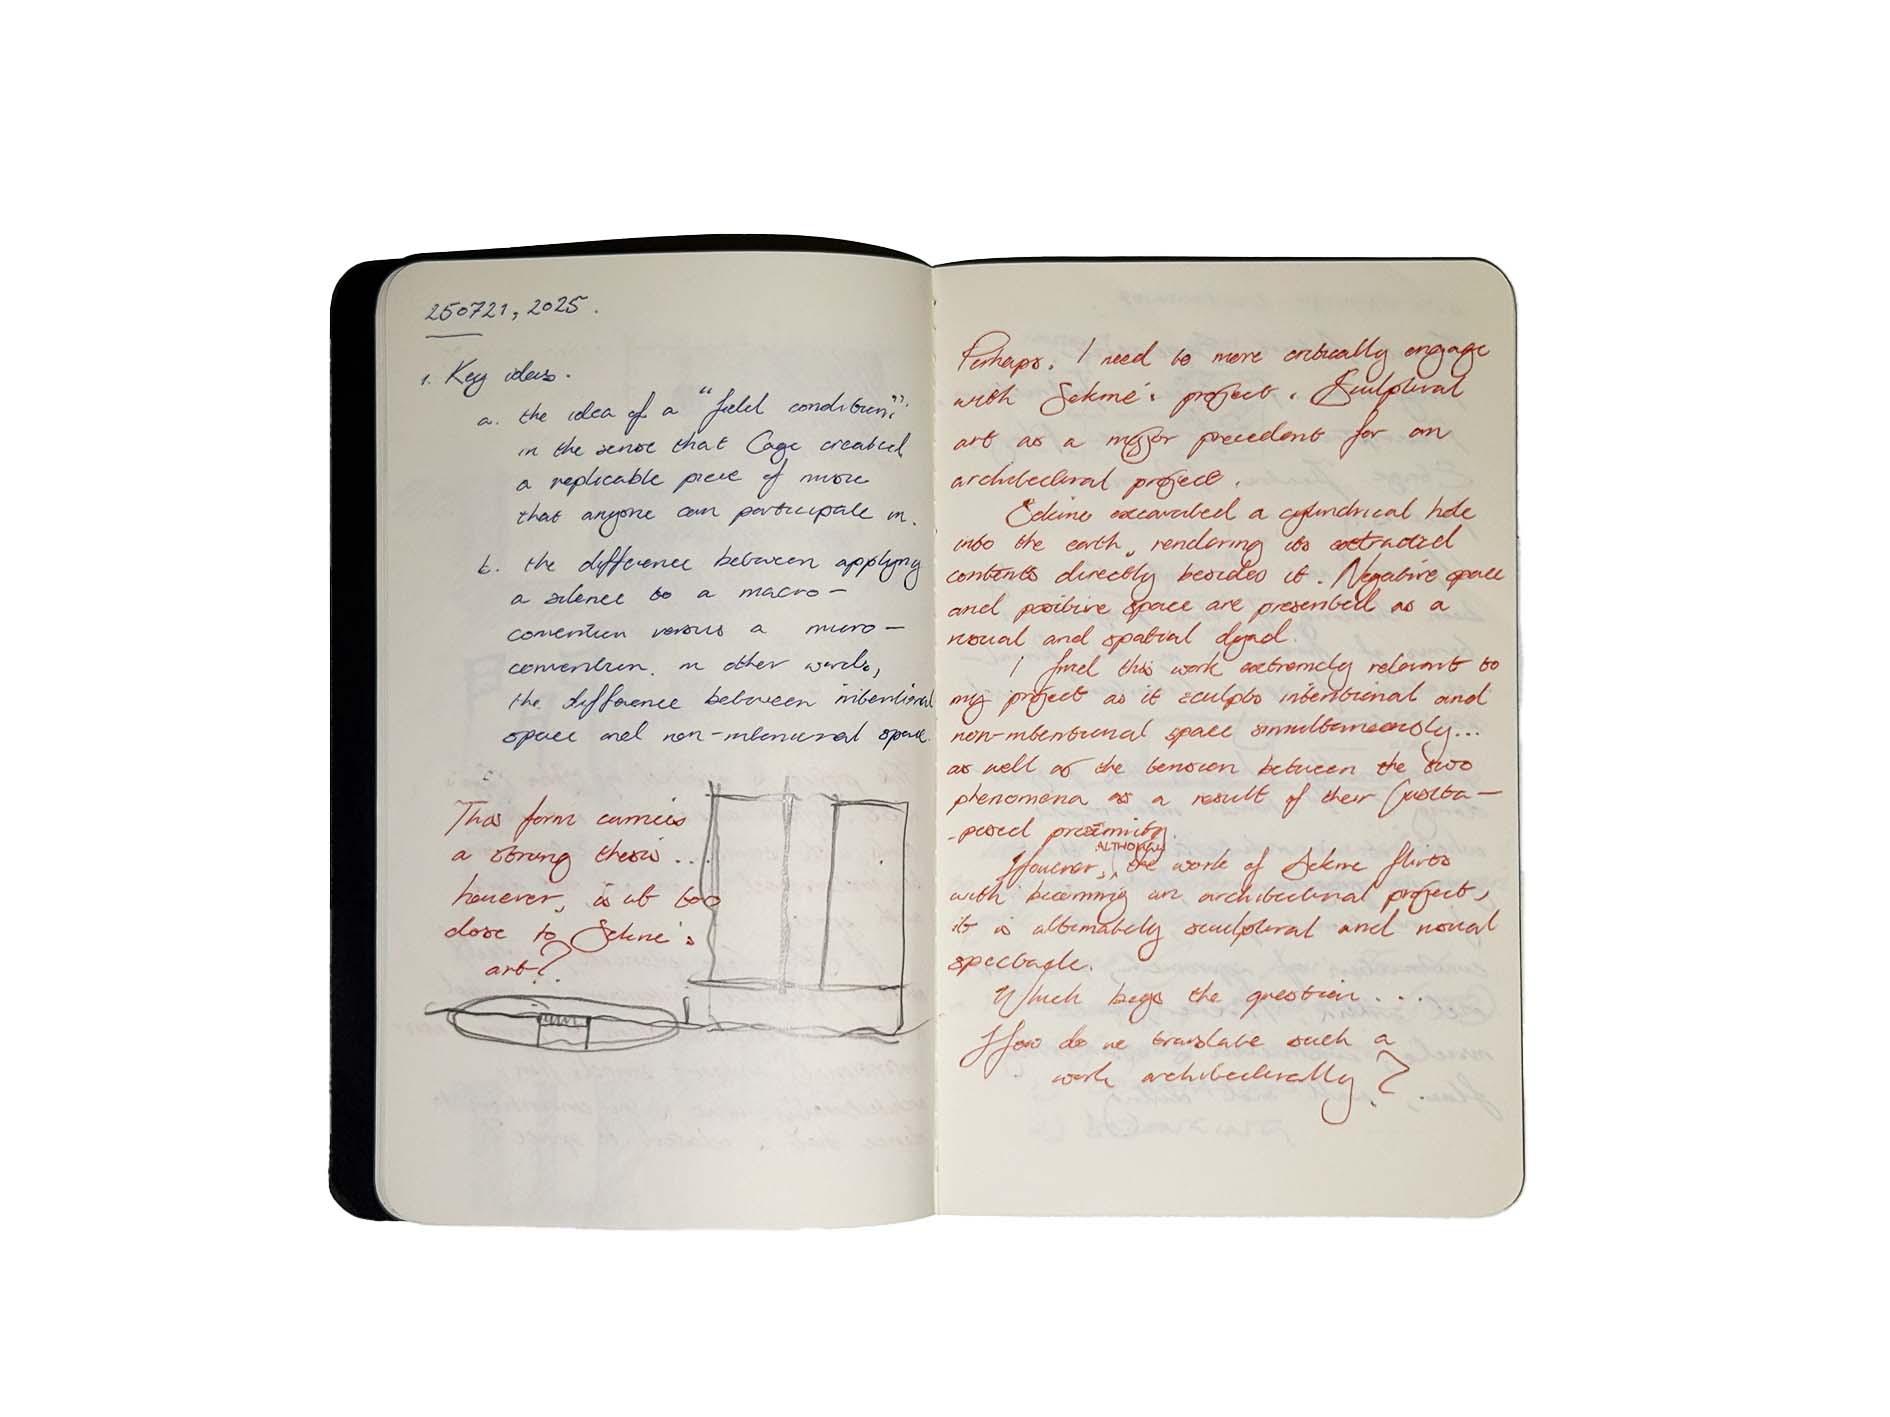 250721, 2025.
1. Key ideas.
a. the idea of a "field condition",
in the sense that Cage created
a replicable piece of music
that anyone can participate in.
b. the difference between applying
a silence to a macro-
convention versus a micro-
convention. in other words,
the difference between intentional
space and non-intentional space.
This form carries
a strong thesis...
however, is it too
close to Sekine's
art?
Perhaps. I need to more critically engage
with Sekine's project. Sculptural
art as a major precedent for an
architectural project.
Sekine excavated a cylindrical hole
into the earth, rendering its extracted
contents directly besides it. Negative space
and positive space are presented as a
visual and spatial dyad.
I find this work extremely relevant to
my project as it sculpts intentional and
non-intentional space simultaneously...
as well as the tension between the two
phenomena as a result of their juxta-
-posed proximity.
However, ALTHOUGH the work of Sekine flirts
with becoming an architectural project,
it is ultimately sculptural and visual
spectacle.
Which begs the question....
How do we translate such a
work architecturally?